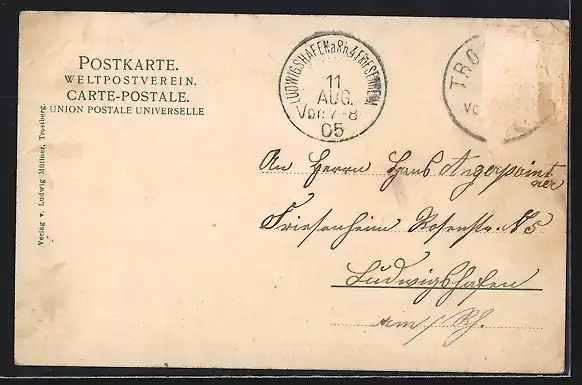 POSTKARTE.
WELTPOSTVEREIN.
CARTE-POSTALE.
UNION POSTALE UNIVERSELLE
Verlag v. Ludwig Müllner, Trostberg.
LUDWIGSHAFEN a Rh 4 FRIESENHEIM
11
AUG.
Vor. 7-8
05
TRO
Vo
An Herrn Hans Angerpoint
ner
Friesenheim Rosenstr. N 5
Ludwigshafen
am / Rh.